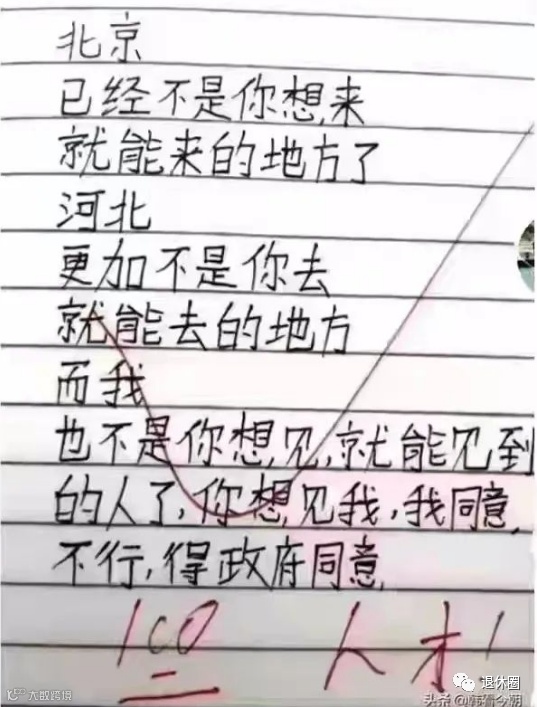 北京
已经不是你想来
就能来的地方了
河北
更加不是你去
就能去的地方
而我
也不是你想见,就能见到
的人了,你想见我,我同意,
不行,得政府同意
100 人才!
退休圈
大数跨境
头条@韩看今朝